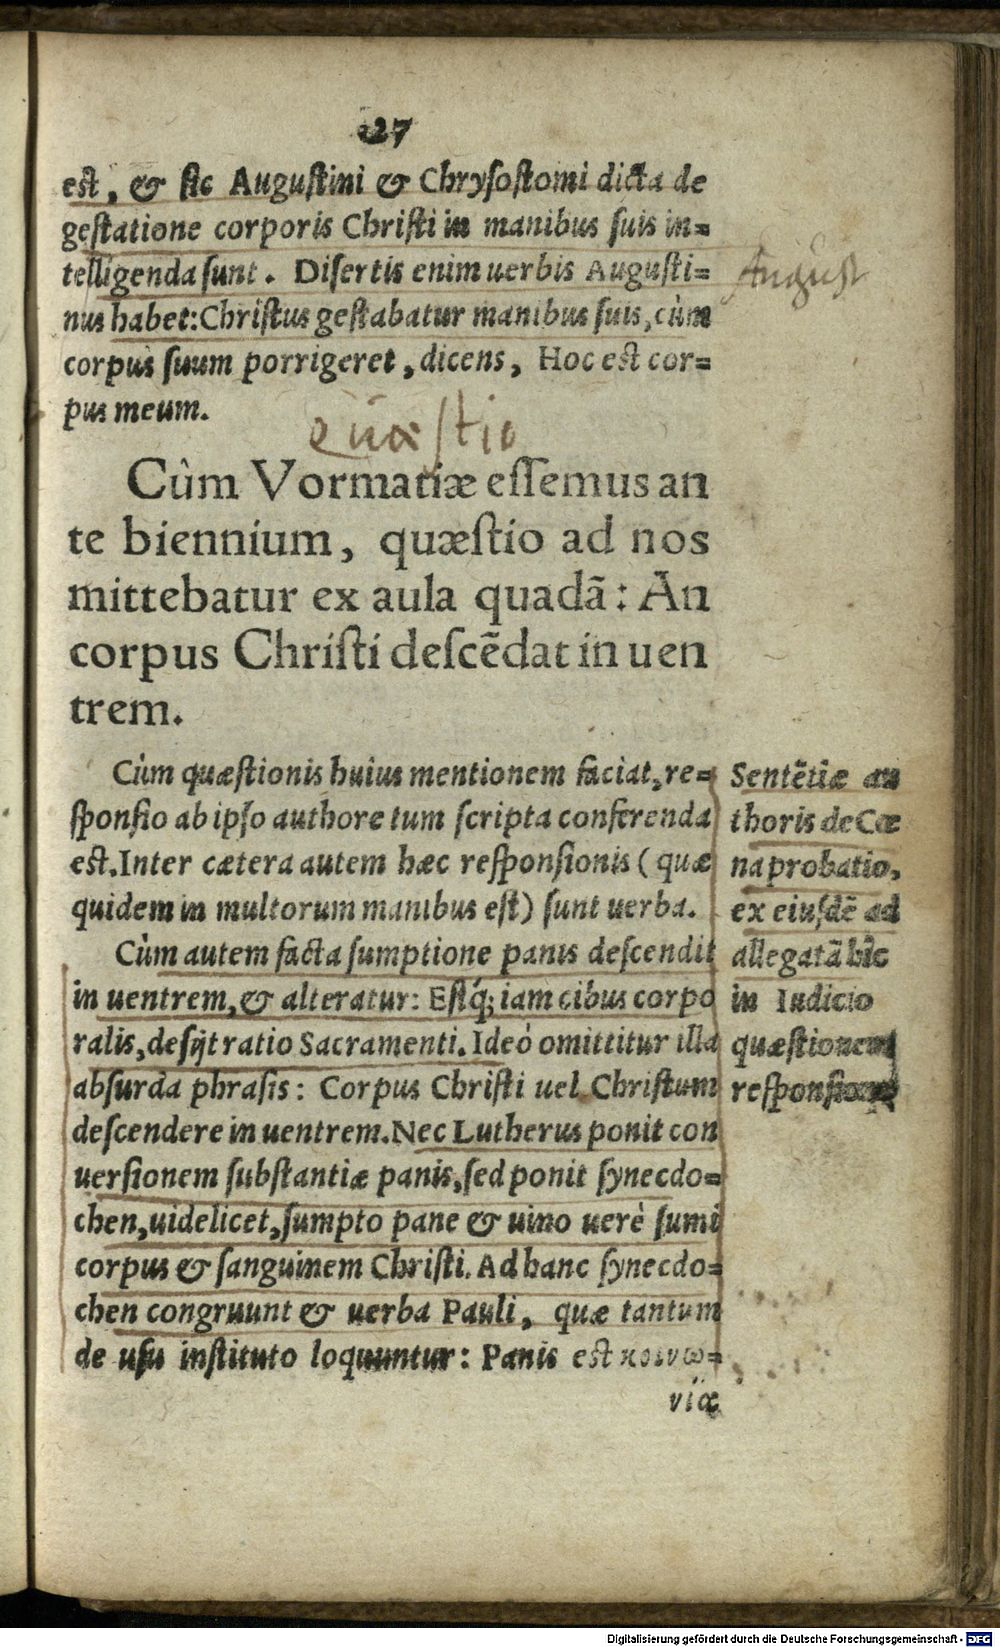 27
est, & sic Augustini & Chrysostomi dicta de
gestatione corporis Christi in manibus suis in=
telligenda sunt. Disertis enim uerbis Augusti=
nus habet: Christus gestabatur manibus suis, cùm
corpus suum porrigeret, dicens, Hoc est cor=
pus meum.
August
Quæstio
Cûm Vormatiæ essemus an
te biennium, quæstio ad nos
mittebatur ex aula quadã: An
corpus Christi descẽdat in uen
trem.
Cùm quæstionis huius mentionem faciat, re=
sponsio ab ipso authore tum scripta conferenda
est. Inter cætera autem hæc responsionis (quæ
quidem in multorum manibus est) sunt uerba.
Cùm autem facta sumptione panis descendit
in uentrem, & alteratur: Estq́; iam cibus corpo
ralis, desijt ratio Sacramenti. Ideò omittitur illa
absurda phrasis: Corpus Christi uel Christum
descendere in uentrem. Nec Lutherus ponit con
uersionem substantiæ panis, sed ponit synecdo=
chen, uidelicet, sumpto pane & uino uerè sumi
corpus & sanguinem Christi. Ad hanc synecdo=
chen congruunt & uerba Pauli, quæ tantum
de usu instituto loquuntur: Panis est κοινω=
νίᾳ
Sentẽtiæ au
thoris de Cœ
na probatio,
ex eiusdẽ ad
allegatã hîc
in Iudicio
quæstionem
responsione
Digitalisierung gefördert durch die Deutsche Forschungsgemeinschaft - DFG